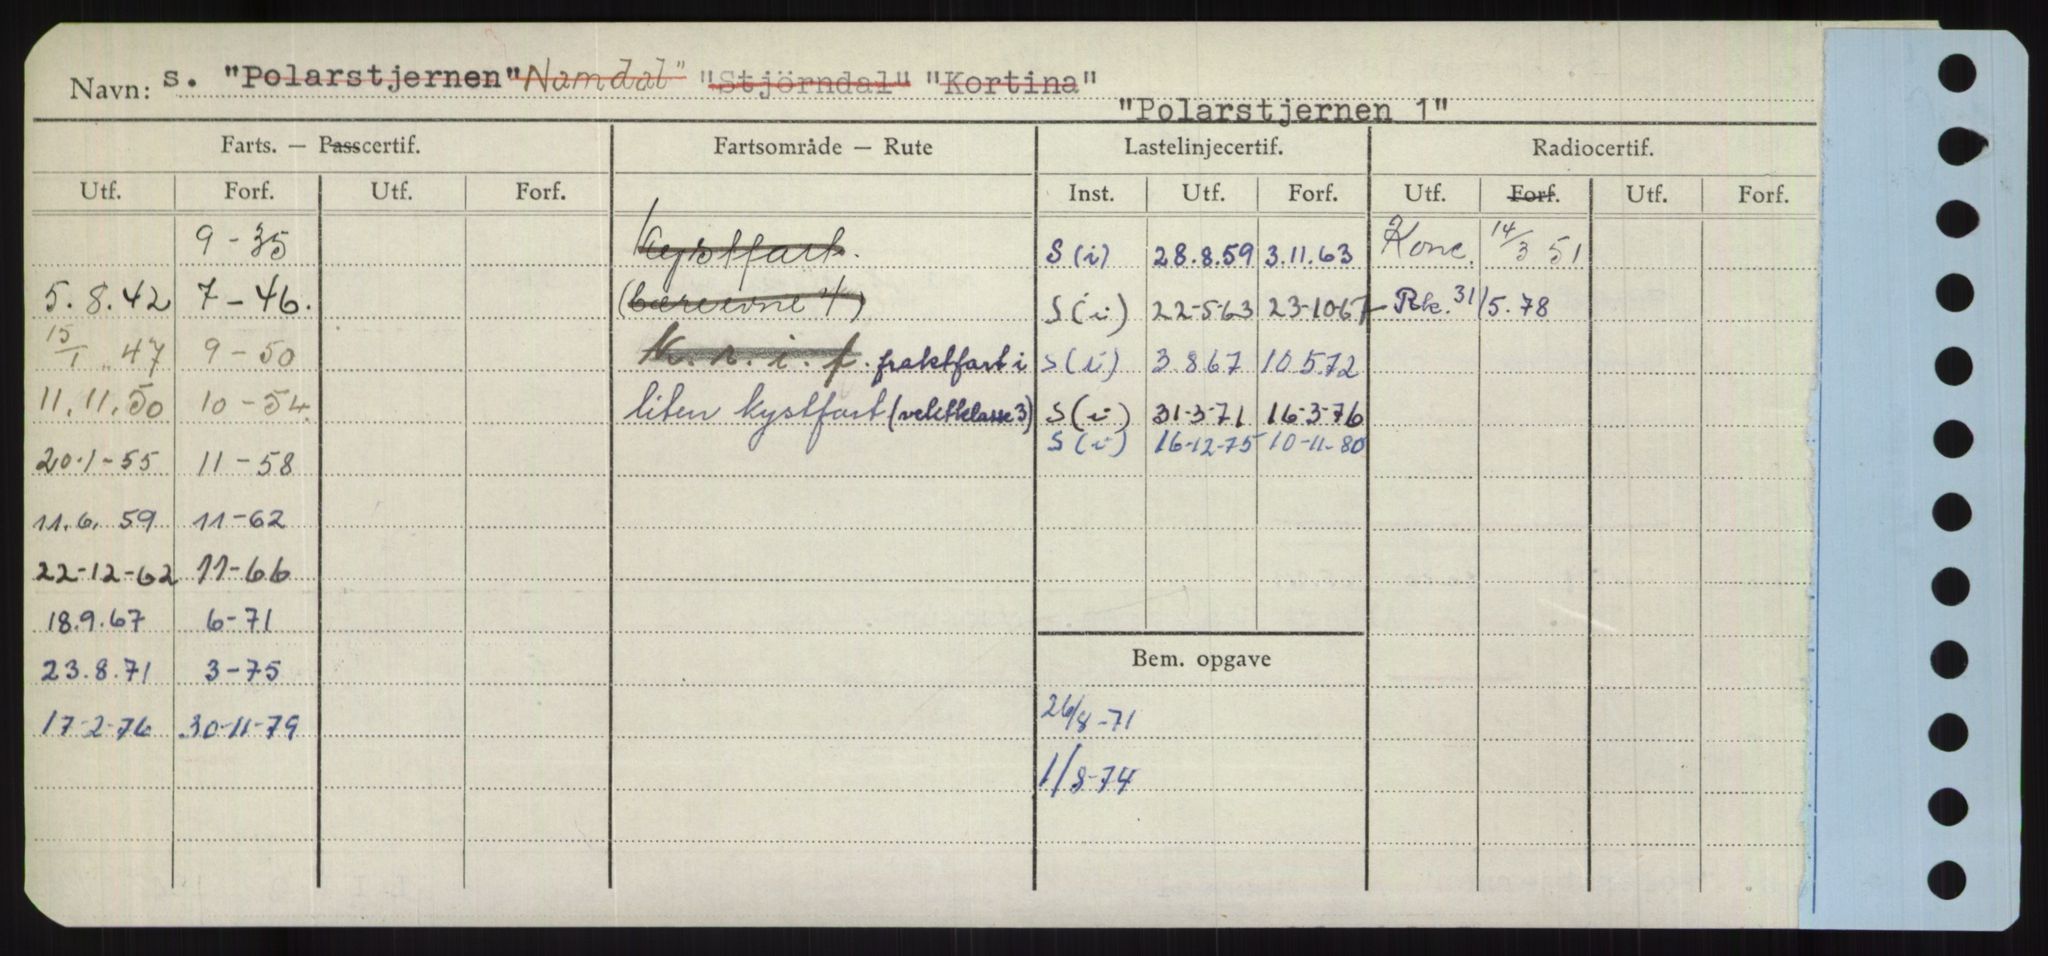 Navn: s. "Polarstjernen" Namdal" "Stjörndal" "Kortina"
"Polarstjernen 1"
Farts. — Passcertif. Fartsområde — Rute Lastelinjecertif. Radiocertif.
Utf. Forf. Utf. Forf. Inst. Utf. Forf. Utf. Forf. Utf. Forf.
9-35 Kystfart. S (i) 28.8.59 3.11.63 Konc. 14/3 51
5.8.42 7-46. (bæreevne 4) S (i) 22-5-63 23-10-67 Rk. 31/5.78
15/1 47 9-50 K. n. i. f. fraktfart i S (i) 3.8.67 10.5.72
11.11.50 10-54 liten kystfart (vektklasse 3) S (i) 31-3-71 16-3-76
S (i) 16-12-75 10-11-80
20-1-55 11-58
11.6.59 11-62
22-12-62 11-66
18.9.67 6-71
Bem. opgave
23.8.71 3-75
26/8-71
17-2-76 30-11-79
1/8-74